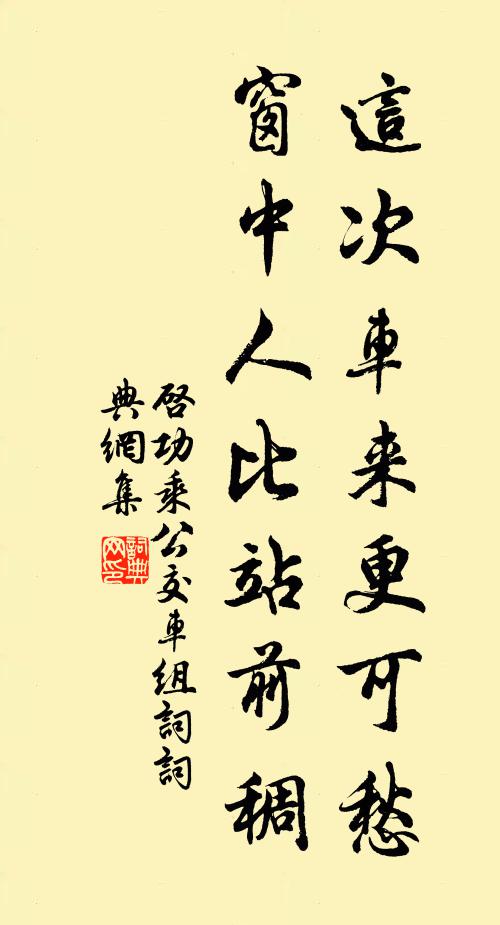 這次車来更可愁
窗中人比站前稠
啓功乘公交車組詞詞
典網集
詞典
网印